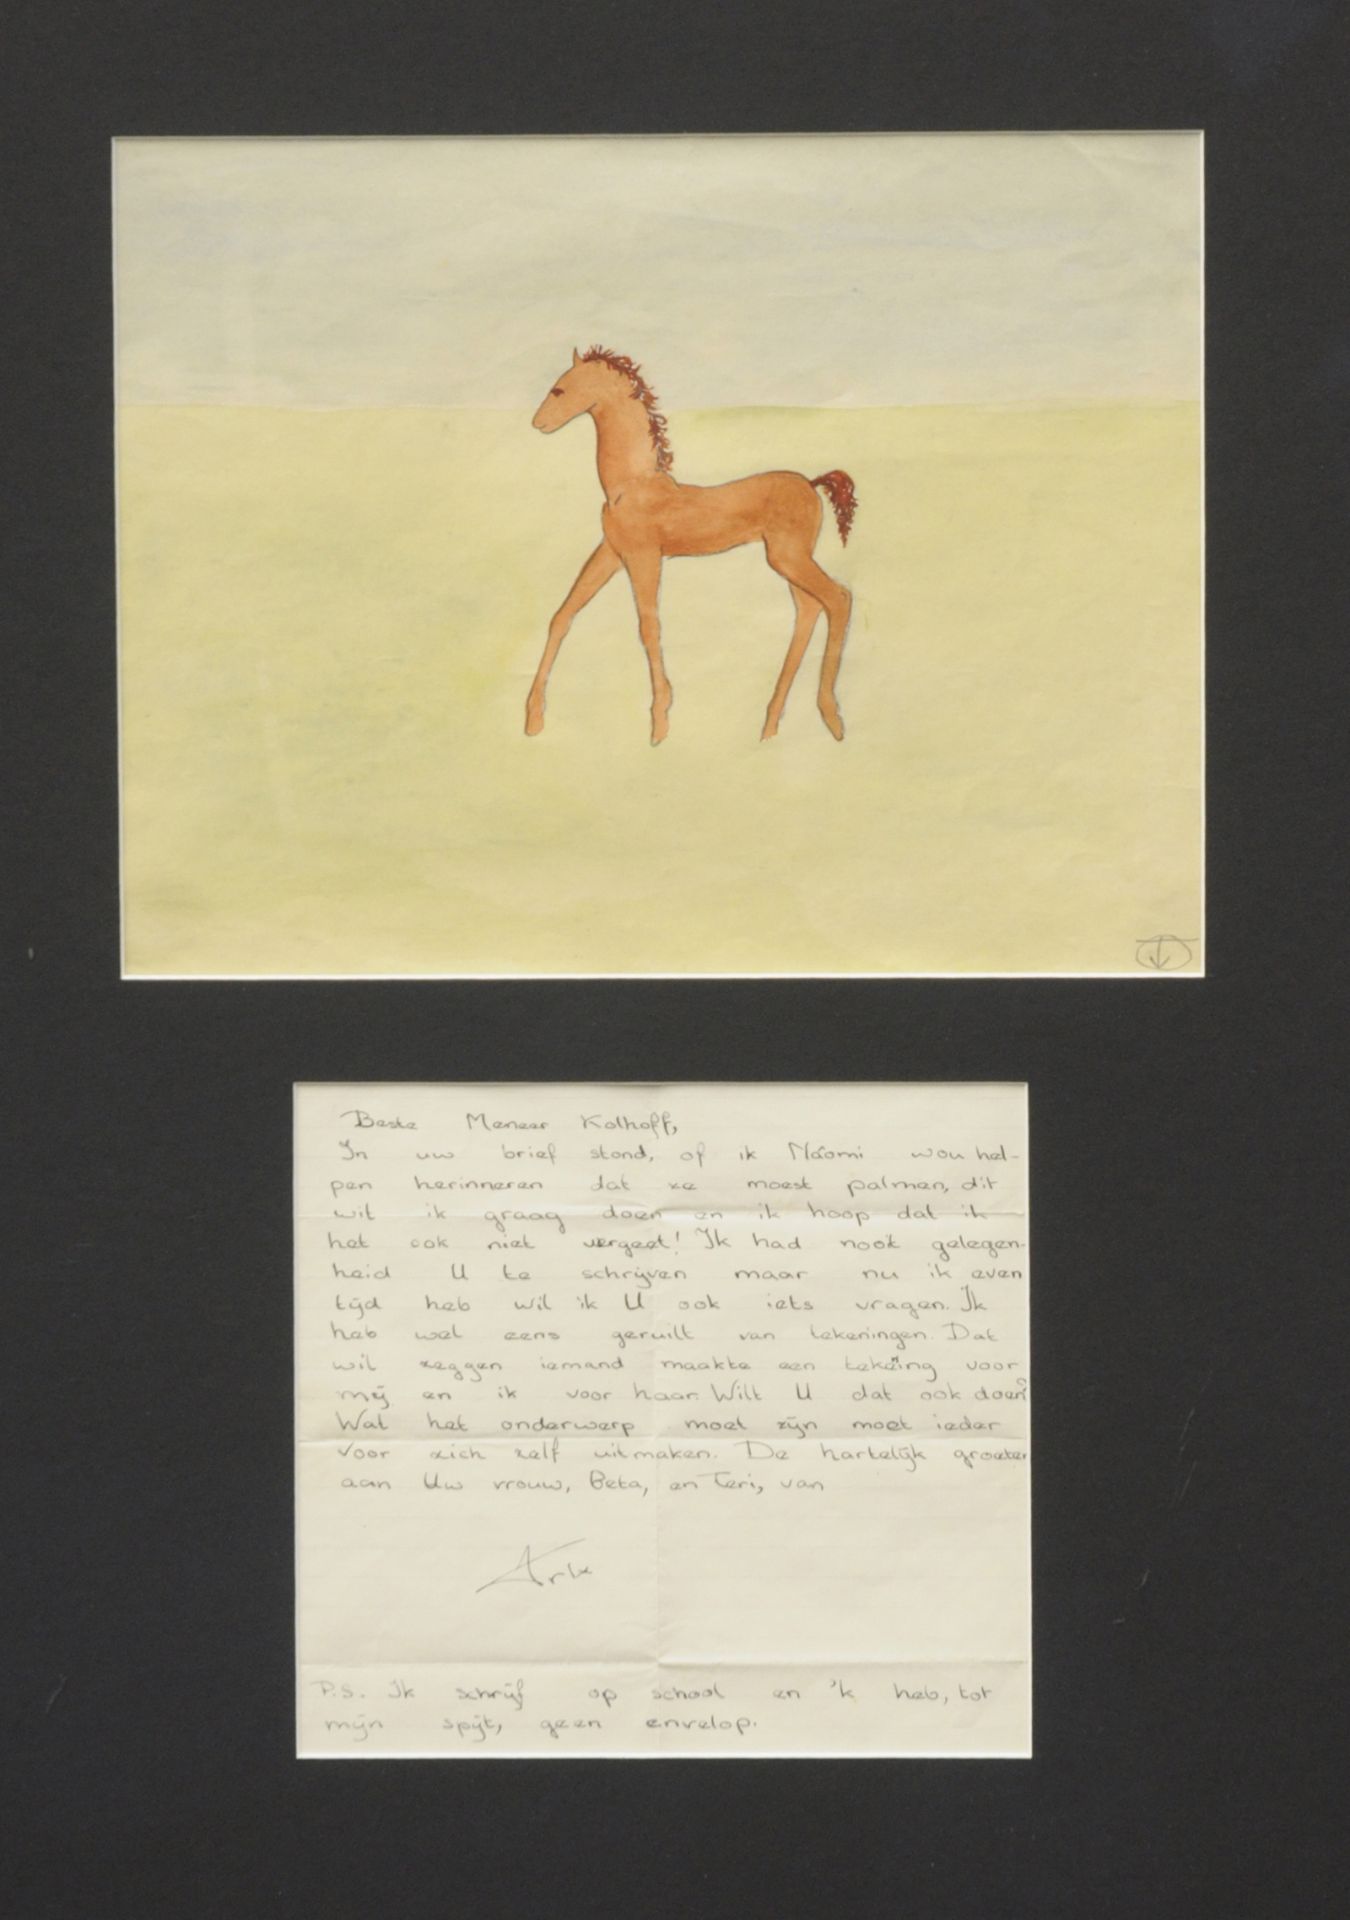 Beste Meneer Kolhoff,
In uw brief stond, of ik Náomi wou hel-
pen herinneren dat ze moest palmen, dit
wil ik graag doen en ik hoop dat ik
het ook niet vergeet! Ik had nooit gelegen-
heid U te schrijven maar nu ik even
tijd heb wil ik U ook iets vragen. Ik
heb wel eens geruilt van tekeningen. Dat
wil zeggen iemand maakte een voor
mij en ik voor haar. Wilt U dat ook doen?
Wat het onderwerp moet zijn moet ieder
voor zich zelf uitmaken. De hartelijk groeten
aan Uw vrouw, Beta, en Teri, van
P.S. Ik schrijf op school en 'k heb, tot
mijn spijt, geen envelop.